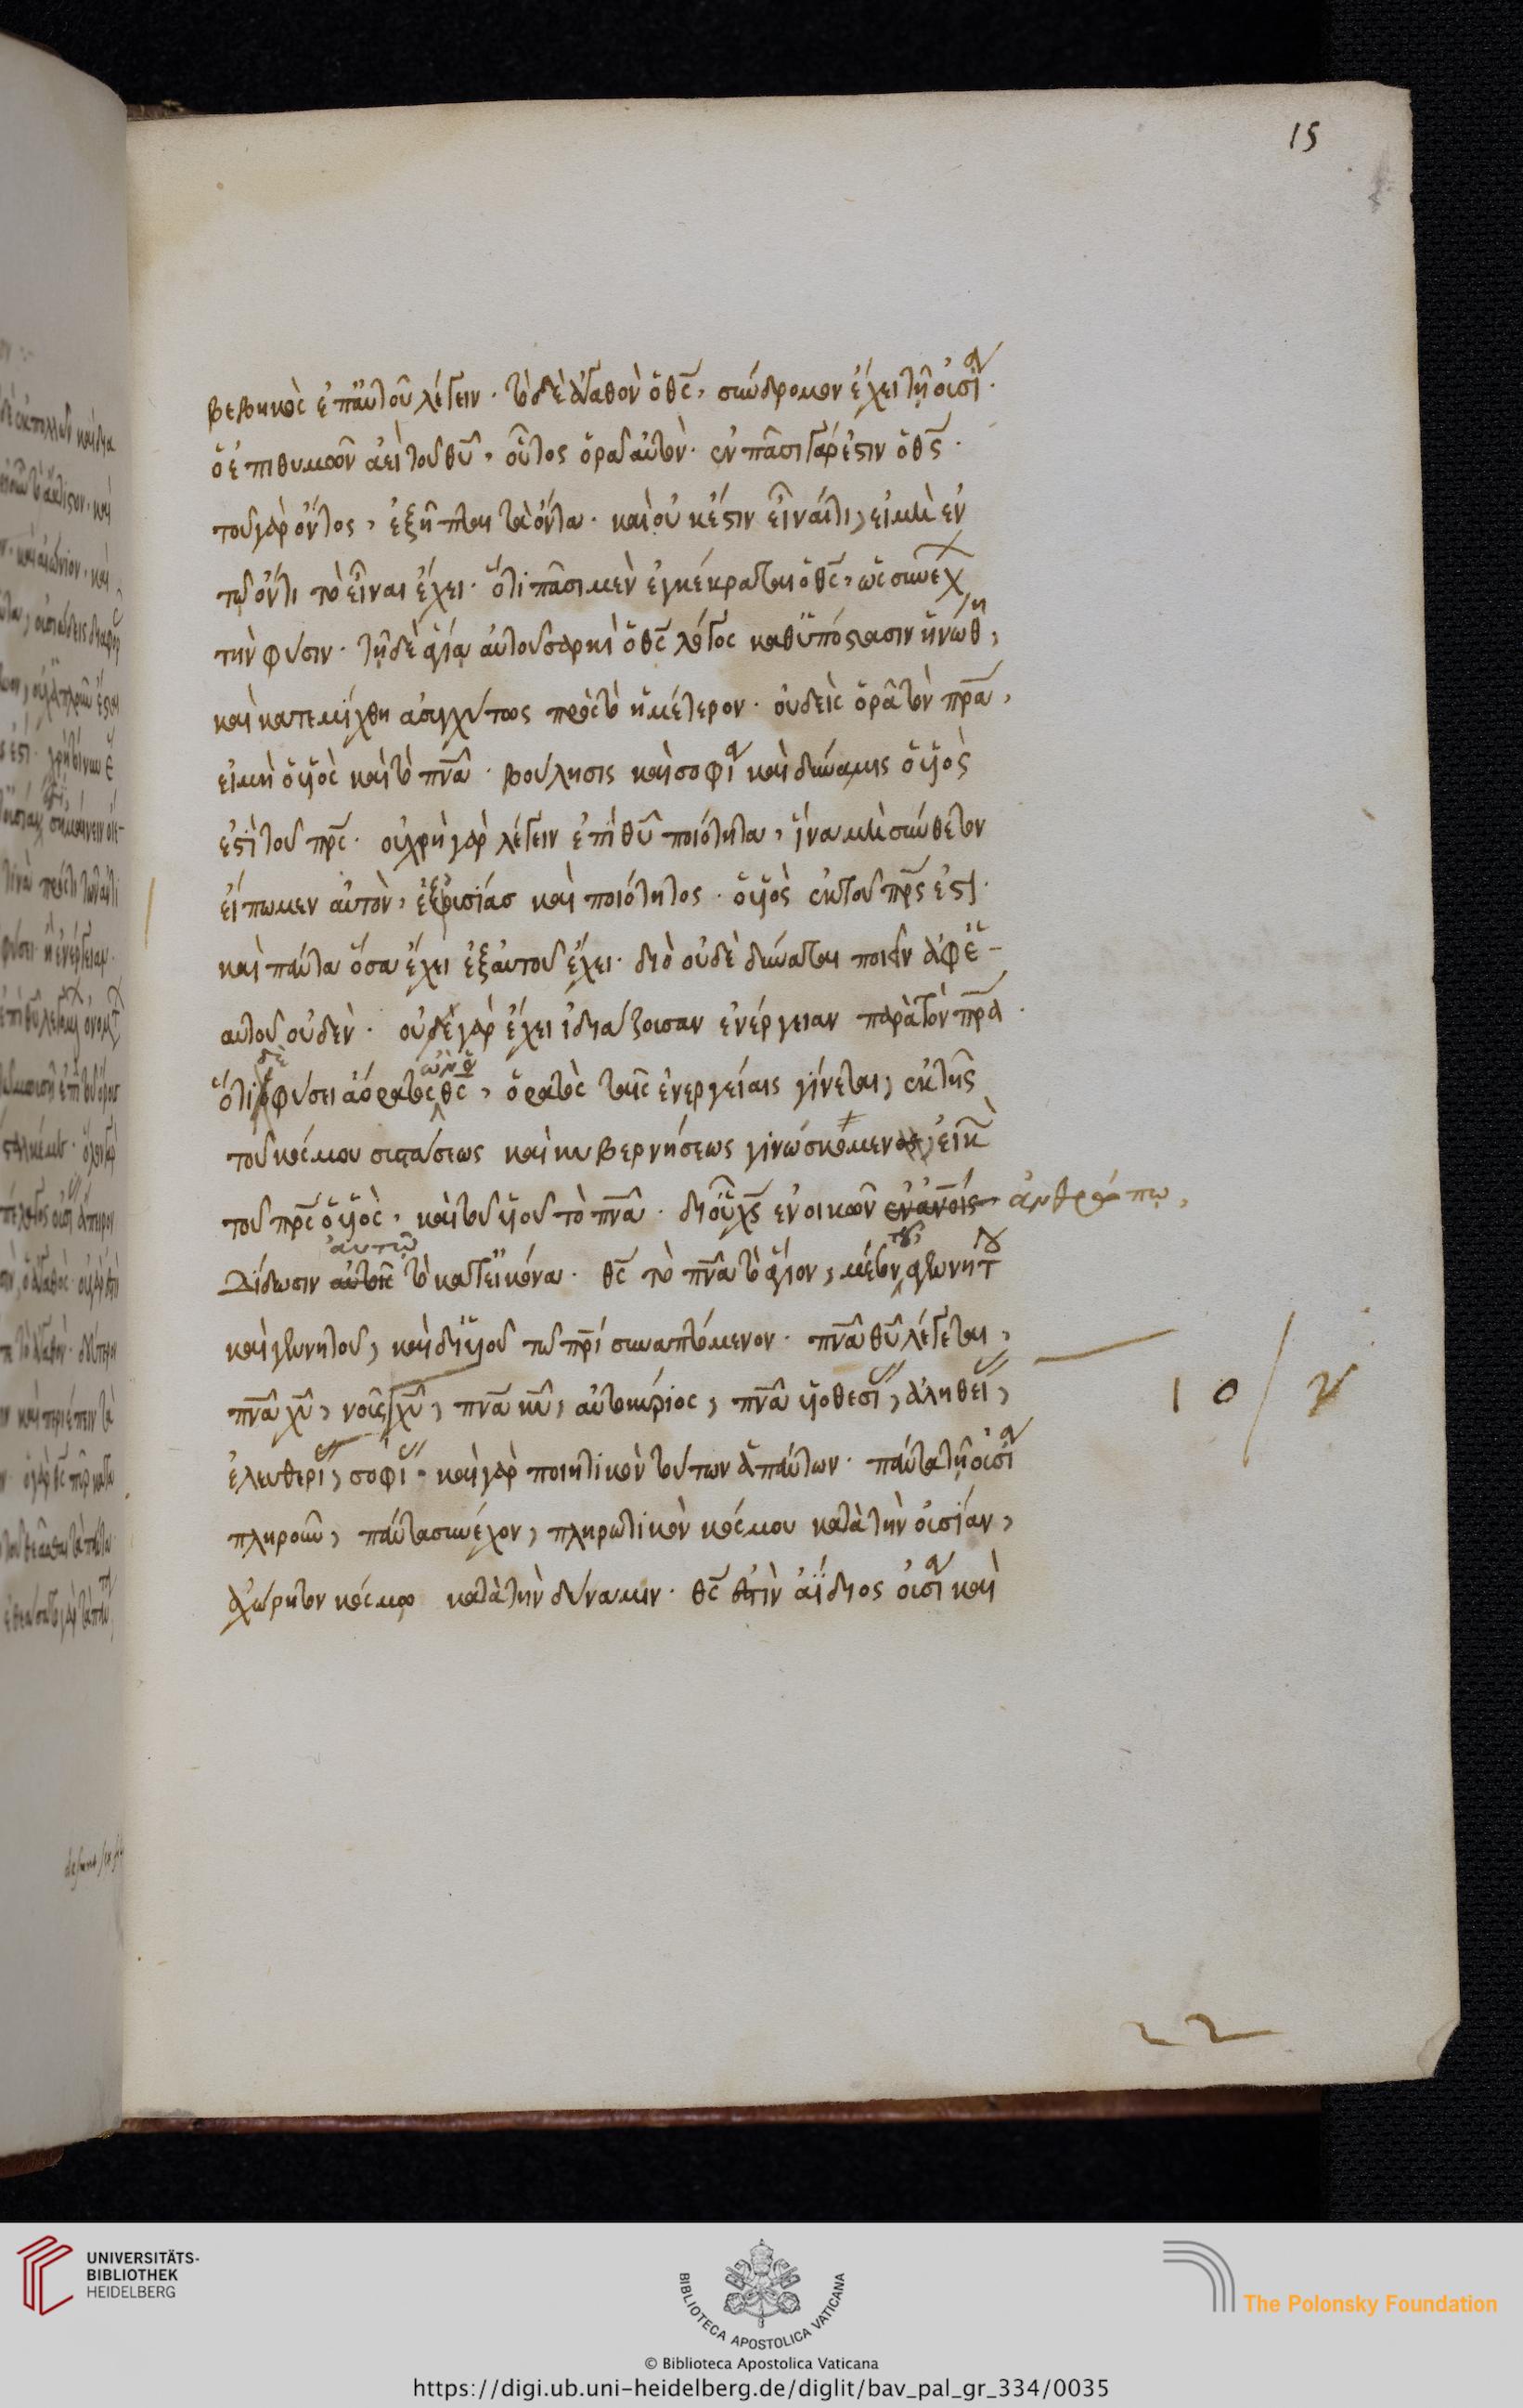 15
βεβηκὸς ἐπ' αὐτοῦ λέγειν · τὸ δὲ ἀγαθὸν ὁ θς, σύνδρομον ἔχει τῇ οὐσίᾳ ·
ὁ ἐπιθυμῶν ἀεὶ τοῦ θυ, οὗτος ὁρᾷ αὐτὸν · ἐν πᾶσι γάρ ἐστιν ὁ θς ·
τοῦ γὰρ ὄντος, ἐξῆπται τὰ ὄντα · καὶ οὐκ ἔστιν εἶναί τι, εἰ μὴ ἐν
τῷ ὄντι τὸ εἶναι ἔχει · ὅτι πᾶσι μὲν ἐγκέκραται ὁ θς, ὡς συνέχ
τὴν φύσιν · τῇ δὲ ἁγίᾳ αὐτοῦ σαρκὶ ὁ θς λόγος καθ' ὑπόστασιν ἡνώθη,
καὶ κατεμίχθη ἀσυγχύτως πρὸς τὸ ἡμέτερον · οὐδεὶς ὁρᾷ τὸν πρα,
εἰ μὴ ὁ υἱὸς καὶ τὸ πνα · βούλησις καὶ σοφία καὶ δύναμις ὁ υἱὸς
ἐστὶ τοῦ πρς · οὐ χρὴ γὰρ λέγειν ἐπὶ θυ ποιότητα, ἵνα μὴ σύνθετον
εἴπωμεν αὐτὸν, ἐξ οὐσίας καὶ ποιότητος · ὁ υἱὸς ἐκ τοῦ πρς ἐστὶ ·
καὶ πάντα ὅσα ἔχει ἐξ αὐτοῦ ἔχει · διὸ οὐδὲ δύναται ποιεῖν ἀφ' ἑ-
αυτοῦ οὐδὲν · οὐδὲ γὰρ ἔχει ἰδιάζουσαν ἐνέργειαν παρὰ τὸν πρα ·
δὲ ὢν ὁ
ὅτι φύσει ἀόρατος θς, ὁρατὸς ταῖς ἐνεργείαις γίνεται, ἐκ τῆς
τοῦ κόσμου συστάσεως καὶ κυβερνήσεως γινωσκόμενος, εἰκὼ
τοῦ πρς ὁ υἱὸς, καὶ τοῦ υἱοῦ τὸ πνα · δι' οὗ χς ἐνοικῶν ἐν ἀνοις ἀνθρώπῳ,
αὐτῷ
Δίδωσιν αὐτοῖς τὸ κατ' εἰκόνα · θς τὸ πνα τὸ ἅγιον, μέσον τοῦ ἀγεννήτου
καὶ γεννητοῦ, καὶ δι' υἱοῦ τῷ πρι συναπτόμενον · πνα θυ λέγεται,
πνα χυ, νοῦς χυ, πνα κυ, αὐτοκύριος, πνα υἱοθεσί, ἀληθεί,
ἐλευθερί, σοφί · καὶ γὰρ ποιητικὸν τούτων ἁπάντων · πάντα τῇ οὐσίᾳ
πληροῦν, πάντα συνέχον, πληρωτικὸν κόσμου κατὰ τὴν οὐσίαν,
ἀχώρητον κόσμῳ κατὰ τὴν δύναμιν · θς ἐστὶν ἀΐδιος οὐσία καὶ
10 /
22
UNIVERSITÄTS-
BIBLIOTHEK
HEIDELBERG
BIBLIOTECA APOSTOLICA VATICANA
The Polonsky Foundation
© Biblioteca Apostolica Vaticana
https://digi.ub.uni-heidelberg.de/diglit/bav_pal_gr_334/0035